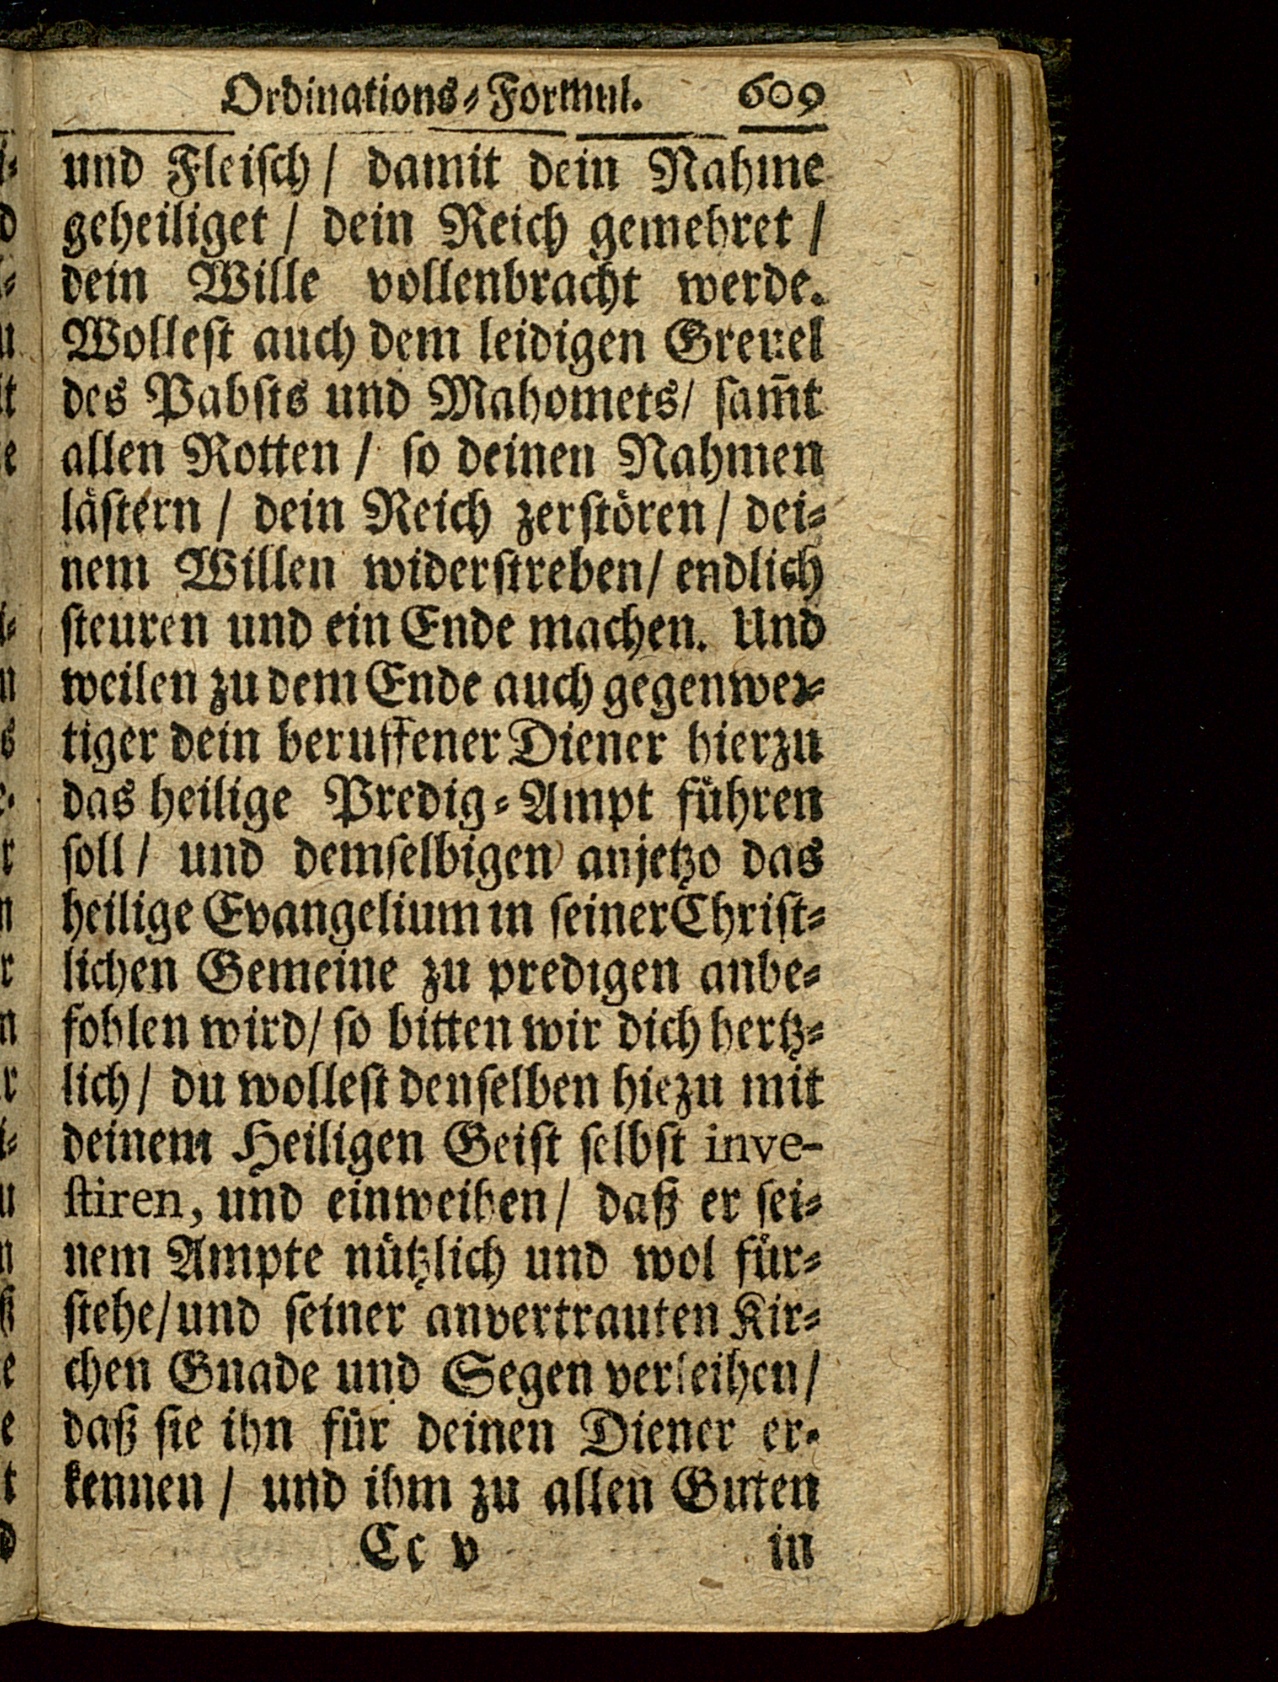 Ordinations-Formul. 609
und Fleisch / damit dein Nahme
geheiliget / dein Reich gemehret /
dein Wille vollenbracht werde.
Wollest auch dem leidigen Greuel
des Pabsts und Mahomets / sam̃t
allen Rotten / so deinen Nahmen
lästern / dein Reich zerstören / dei-
nem Willen widerstreben / endlich
steuren und ein Ende machen. Und
weilen zu dem Ende auch gegenwer-
tiger dein beruffener Diener hierzu
das heilige Predig-Ampt führen
soll / und demselbigen anjetzo das
heilige Evangelium in seiner Christ-
lichen Gemeine zu predigen anbe-
fohlen wird / so bitten wir dich hertz-
lich / du wollest denselben hiezu mit
deinem Heiligen Geist selbst inve-
stiren, und einweihen / daß er sei-
nem Ampte nützlich und wol für-
stehe / und seiner anvertrauten Kir-
chen Gnade und Segen verleihen /
daß sie ihn für deinen Diener er-
kennen / und ihm zu allen Guten
Cc v in